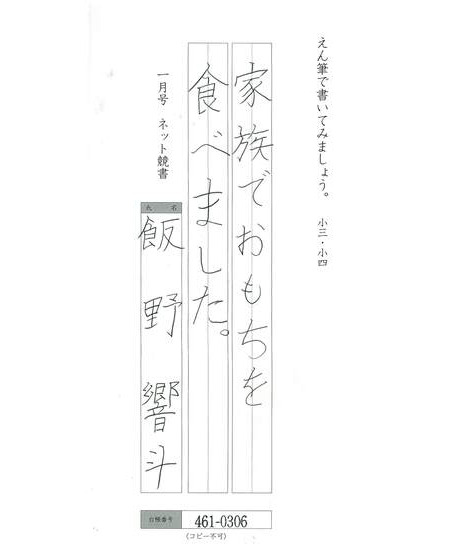 えん筆で書いてみましょう。 小三・小四
家族でおもちを
食べました。
一月号 ネット競書
氏 名
飯野響斗
台帳番号 461-0306
(コピー不可)